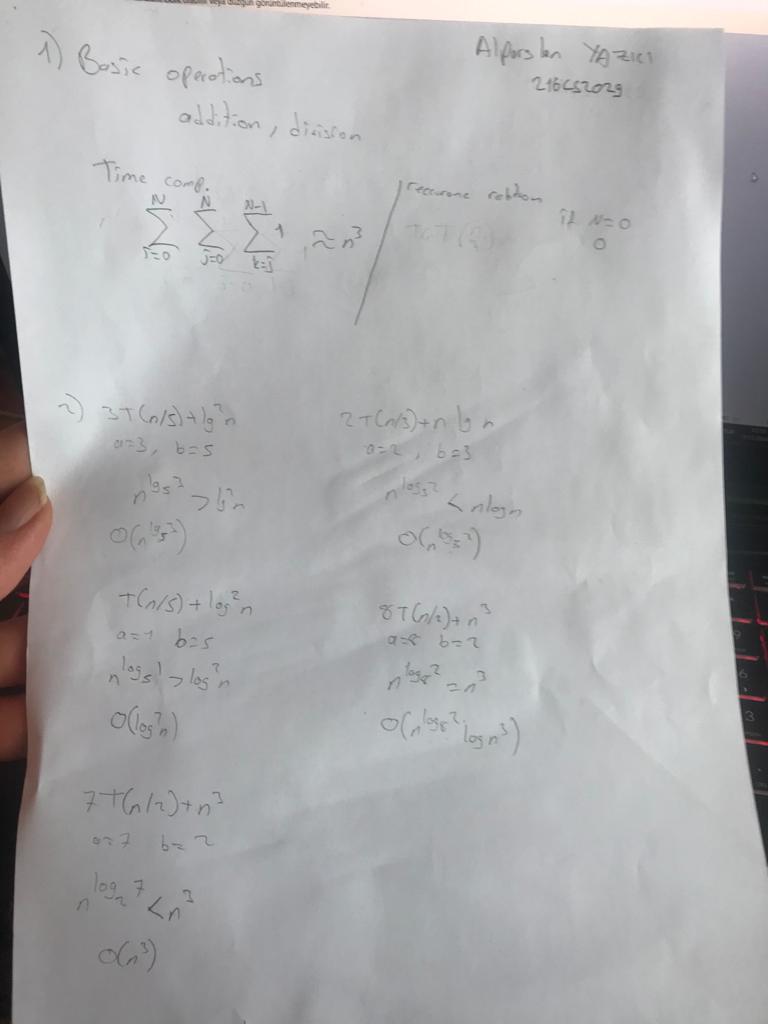 veya düzgün görüntülenmeyebilir.
Alparslan YAZICI
1) Basic operations
addition, division
Time comp.
N N N-1
∑ ∑ ∑ 1 ≈ n³
i=0 j=0 k=j
if N=0
0
2) 3T(n/5)+lg²n
a=3, b=5
n^log₅3 > lg²n
O(n^log₅3)
2T(n/3)+n lg n
a=2, b=3
n^log₃2 < nlogn
O(n^log₃2)
T(n/5)+log²n
a=1 b=5
n^log₅1 > log²n
O(log²n)
8T(n/2)+n³
a=8 b=2
n^log₈2 = n³
O(n^log₈2 logn³)
7T(n/2)+n³
a=7 b=2
n^log₂7 < n³
O(n³)